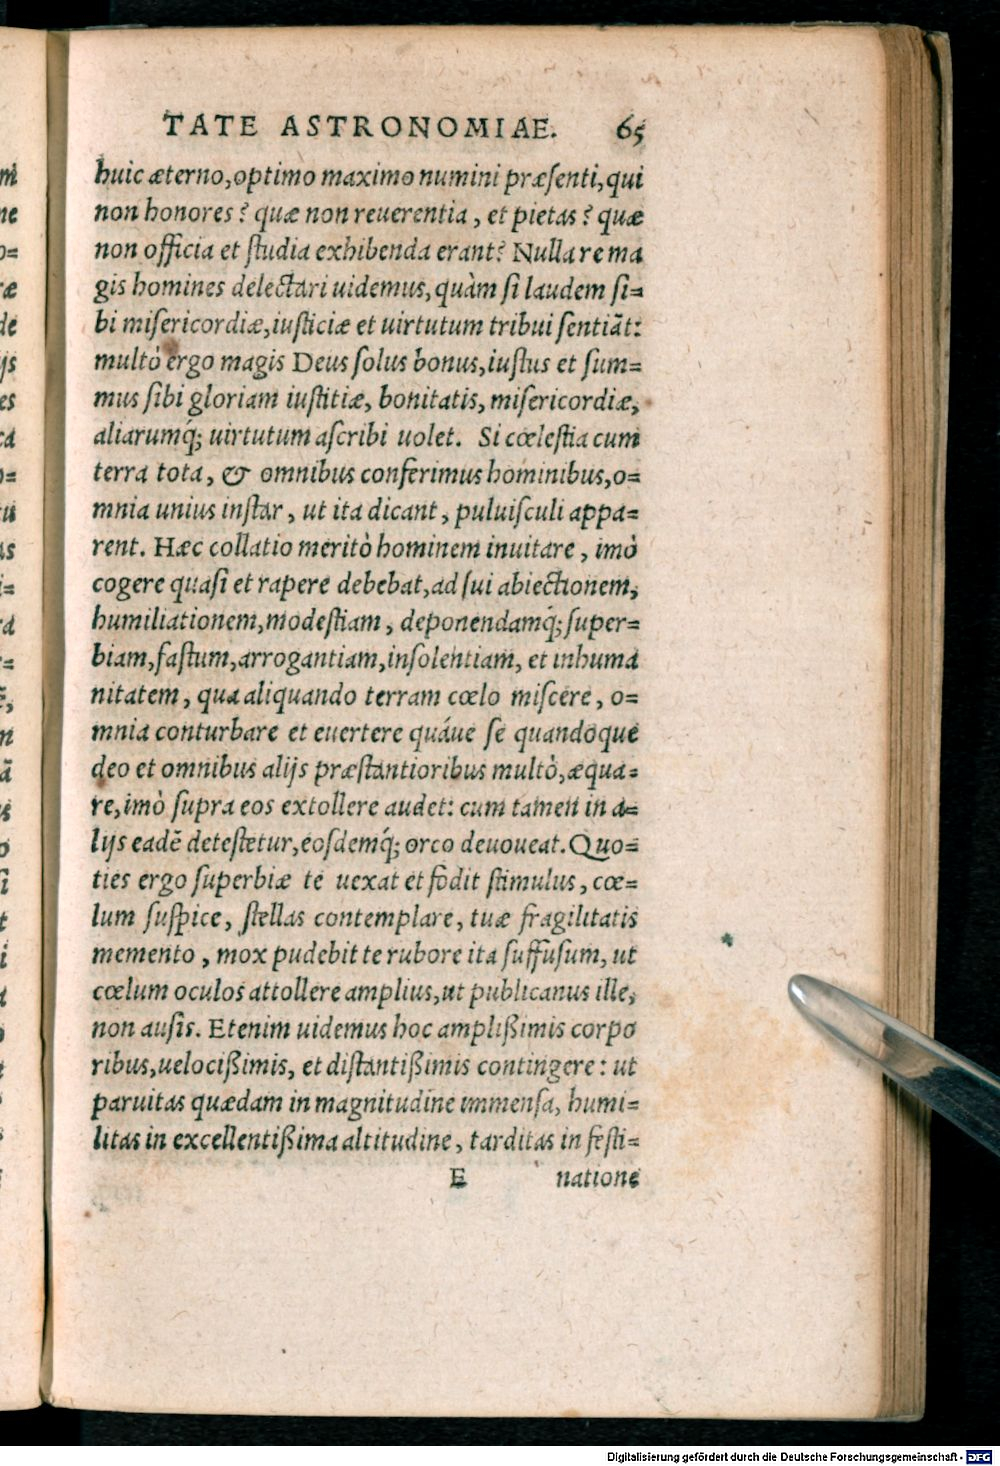 TATE ASTRONOMIAE. 65
huic æterno, optimo maximo numini præsenti, qui
non honores? quæ non reuerentia, et pietas? quæ
non officia et studia exhibenda erant? Nulla re ma
gis homines delectari uidemus, quàm si laudem si=
bi misericordiæ, iusticiæ et uirtutum tribui sentiãt:
multò ergo magis Deus solus bonus, iustus et sum=
mus sibi gloriam iustitiæ, bonitatis, misericordiæ,
aliarumq́; uirtutum ascribi uolet. Si cœlestia cum
terra tota, & omnibus conferimus hominibus, o=
mnia unius instar, ut ita dicant, puluisculi appa=
rent. Hæc collatio meritò hominem inuitare, imò
cogere quasi et rapere debebat, ad sui abiectionem,
humiliationem, modestiam, deponendamq́; super=
biam, fastum, arrogantiam, insolentiam, et inhuma
nitatem, qua aliquando terram cœlo miscere, o=
mnia conturbare et euertere quáue se quandoque
deo et omnibus alijs præstantioribus multò, æqua=
re, imò supra eos extollere audet: cum tamen in a=
lijs eadẽ detestetur, eosdemq́; orco deuoueat. Quo=
ties ergo superbiæ te uexat et fodit stimulus, cœ=
lum suspice, stellas contemplare, tuæ fragilitatis
memento, mox pudebit te rubore ita suffusum, ut
cœlum oculos attollere amplius, ut publicanus ille,
non ausis. Etenim uidemus hoc amplißimis corpo
ribus, uelocißimis, et distantißimis contingere: ut
paruitas quædam in magnitudine immensa, humi=
litas in excellentißima altitudine, tarditas in festi=
E natione
Digitalisierung gefördert durch die Deutsche Forschungsgemeinschaft - DFG